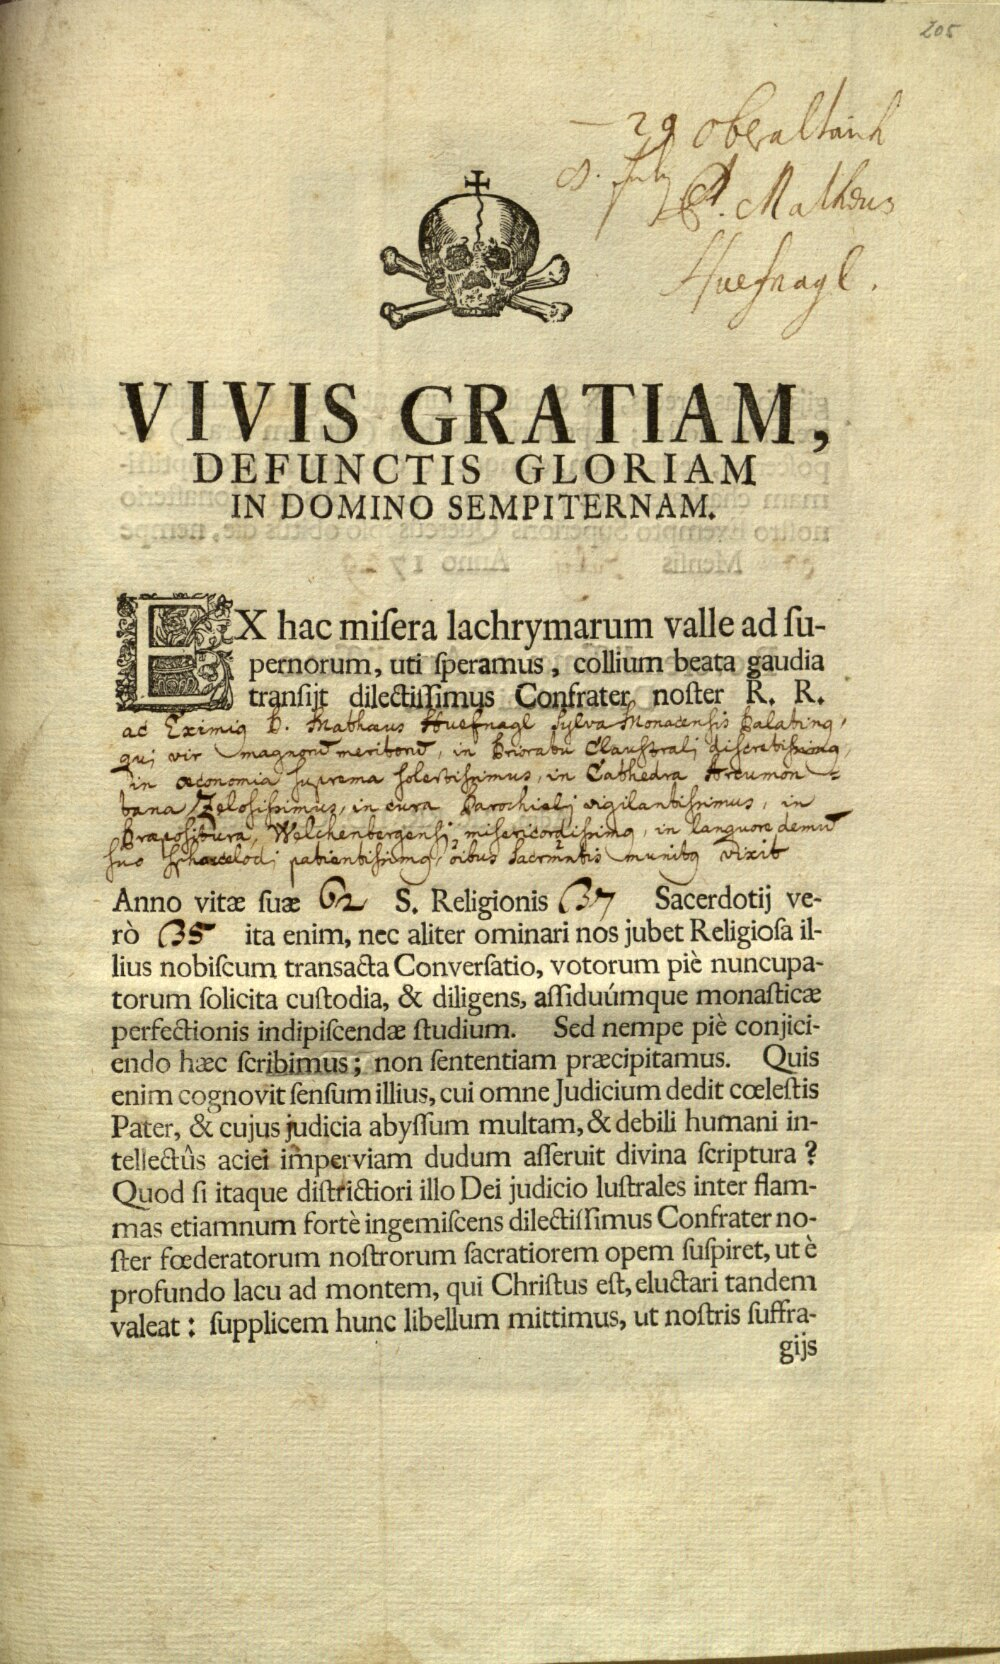 205
29 Oberaltaich
8. July P. Matheus
Huefnagl.
VIVIS GRATIAM,
DEFUNCTIS GLORIAM
IN DOMINO SEMPITERNAM.
EX hac misera lachrymarum valle ad su-
pernorum, uti speramus, collium beata gaudia
transijt dilectissimus Confrater noster R. R.
ac Eximiq D. Mathaus Huefnagl Sylva Monacensis Palatinq,
qui vir magnorū meritorū, in Prioratu Claustrali discretissimq,
in œconomia suprema solertissimus, in Cathedra
Zelosissimus, in cura Parochiali vigilantissimus, in
Præpositura Welchenbergensi misericordissimq, in languore demū
suo patientissimq, oibus Sacrmntis munitq vixit
Anno vitæ suæ 62 S. Religionis 37 Sacerdotij ve-
rò 35 ita enim, nec aliter ominari nos jubet Religiosa il-
lius nobiscum transacta Conversatio, votorum piè nuncupa-
torum solicita custodia, & diligens, assiduúmque monasticæ
perfectionis indipiscendæ studium. Sed nempe piè conjici-
endo hæc scribimus; non sententiam præcipitamus. Quis
enim cognovit sensum illius, cui omne Judicium dedit cœlestis
Pater, & cujus judicia abyssum multam, & debili humani in-
tellectûs aciei imperviam dudum asseruit divina scriptura?
Quod si itaque districtiori illo Dei judicio lustrales inter flam-
mas etiamnum fortè ingemiscens dilectissimus Confrater no-
ster fœderatorum nostrorum sacratiorem opem suspiret, ut è
profundo lacu ad montem, qui Christus est, eluctari tandem
valeat: supplicem hunc libellum mittimus, ut nostris suffra-
gijs